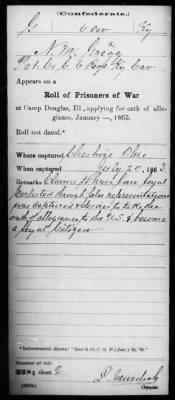 (Confederate.)
G Cav Ky
N. M. Gregg
Appears on a
Roll of Prisoners of War
at Camp Douglas, Ill., applying for oath of alle-
giance, January —, 1865.
Roll not dated.*
Where captured Cheshire Ohio
When captured July 20, 1863.
Remarks Claims to have been loyal
Enlisted through false representations
was captured & desires to take the
oath of allegiance to the U.S. & become
a loyal Citizen
*Indorsement shows: "Rec'd (O. C. G. P.) Jan'y 14, '65."
Number of roll:
228; sheet 2
Copyist.